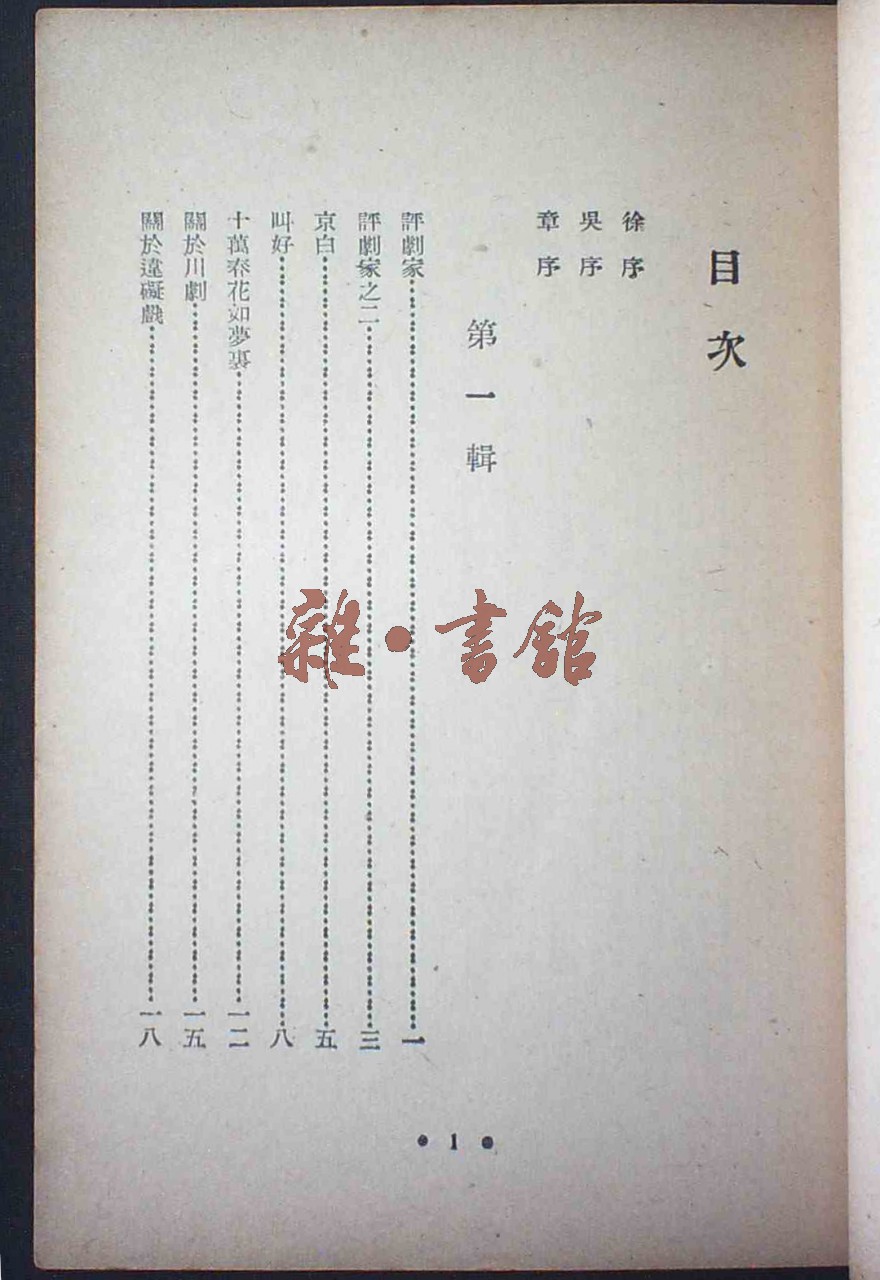 目次
徐序
吳序
章序
第一輯
評劇家⋯⋯一
評劇家之二⋯⋯三
京白⋯⋯五
叫好⋯⋯八
十萬春花如夢裏⋯⋯一二
關於川劇⋯⋯一五
關於違礙戲⋯⋯一八
•1•
雜•書館